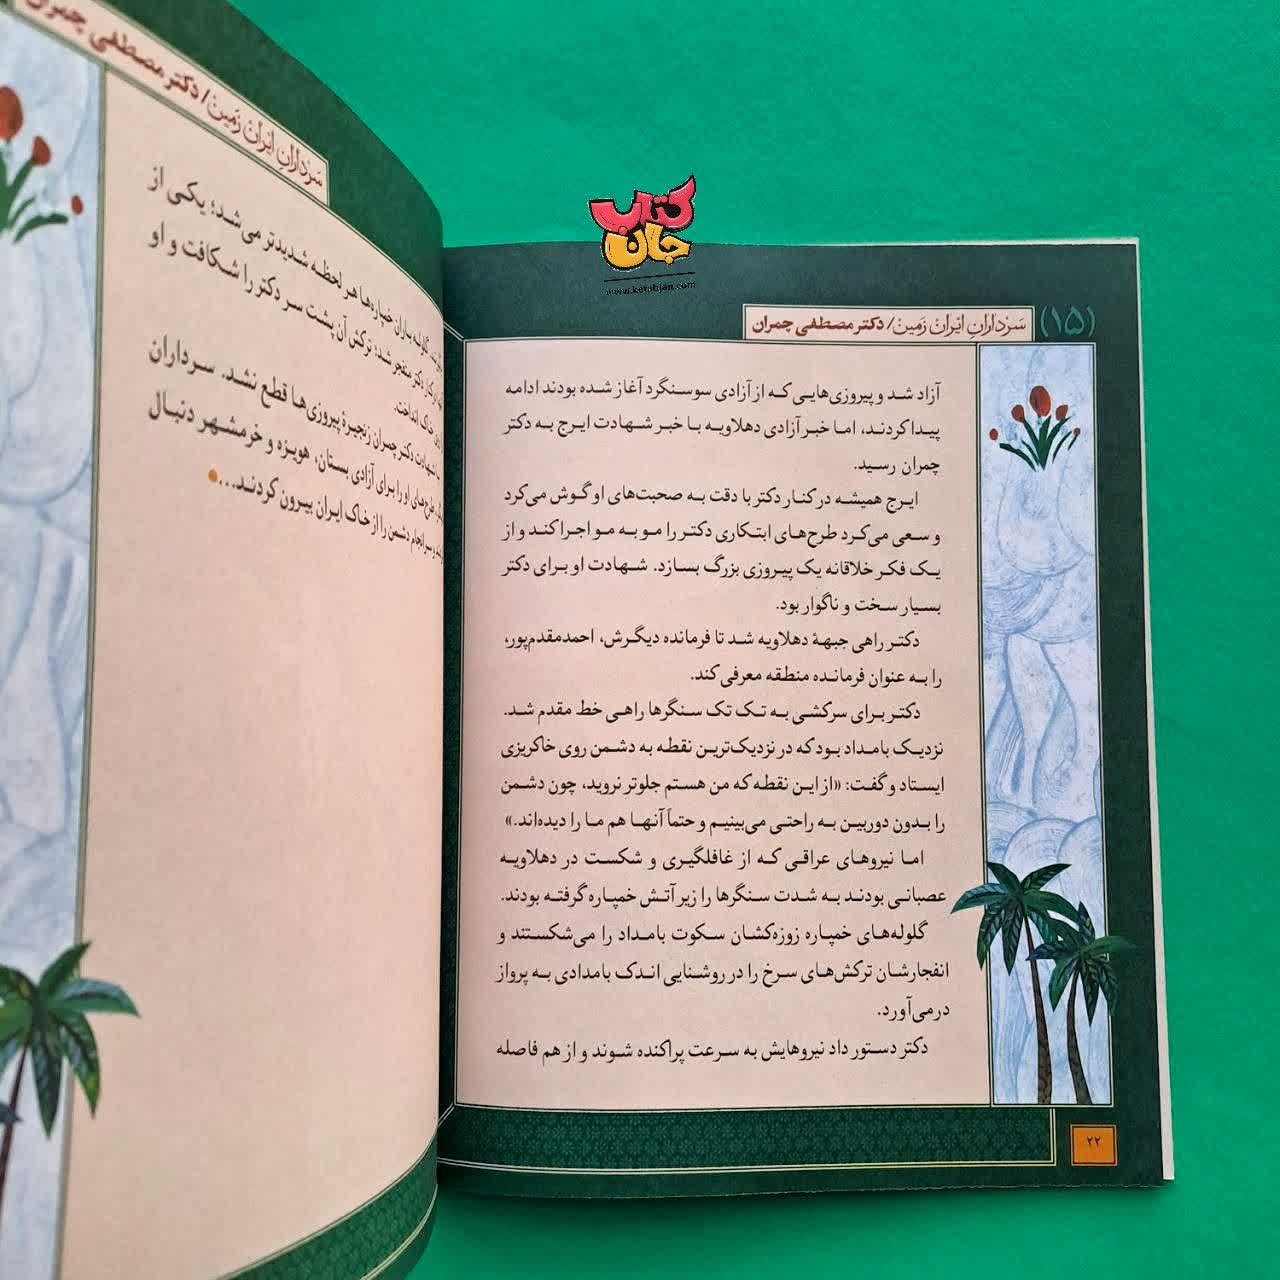 کتاب
جان
www.ketabjan.com
(۱۵)
سرداران ایران زمین/ دکتر مصطفی چمران
آزاد شد و پیروزی‌هایی که از آزادی سوسنگرد آغاز شده بودند ادامه
پیدا کردند، اما خبر آزادی دهلاویه با خبر شهادت ایرج به دکتر
چمران رسید.
ایرج همیشه در کنار دکتر با دقت به صحبت‌های او گوش می‌کرد
و سعی می‌کرد طرح‌های ابتکاری دکتر را مو به مو اجرا کند و از
یک فکر خلاقانه یک پیروزی بزرگ بسازد. شهادت او برای دکتر
بسیار سخت و ناگوار بود.
دکتر راهی جبههٔ دهلاویه شد تا فرمانده دیگرش، احمد مقدم‌پور،
را به عنوان فرمانده منطقه معرفی کند.
دکتر برای سرکشی به تک تک سنگرها راهی خط مقدم شد.
نزدیک بامداد بود که در نزدیک‌ترین نقطه به دشمن روی خاکریزی
ایستاد و گفت: «از این نقطه که من هستم جلوتر نروید، چون دشمن
را بدون دوربین به راحتی می‌بینیم و حتماً آنها هم ما را دیده‌اند.»
اما نیروهای عراقی که از غافلگیری و شکست در دهلاویه
عصبانی بودند به شدت سنگرها را زیر آتش خمپاره گرفته بودند.
گلوله‌های خمپاره زوزه‌کشان سکوت بامداد را می‌شکستند و
انفجارشان ترکش‌های سرخ را در روشنایی اندک بامدادی به پرواز
درمی‌آورد.
دکتر دستور داد نیروهایش به سرعت پراکنده شوند و از هم فاصله
۲۲
سرداران ایران زمین/ دکتر مصطفی چمران
گلوله باران خمپاره‌ها هر لحظه شدیدتر می‌شد؛ یکی از
دکتر منفجر شد؛ ترکش آن پشت سر دکتر را شکافت و او
خاک انداخت.
شهادت دکتر چمران زنجیرهٔ پیروزی‌ها قطع نشد. سرداران
طرح‌های او را برای آزادی بستان، هویزه و خرمشهر دنبال
و سرانجام دشمن را از خاک ایران بیرون کردند...